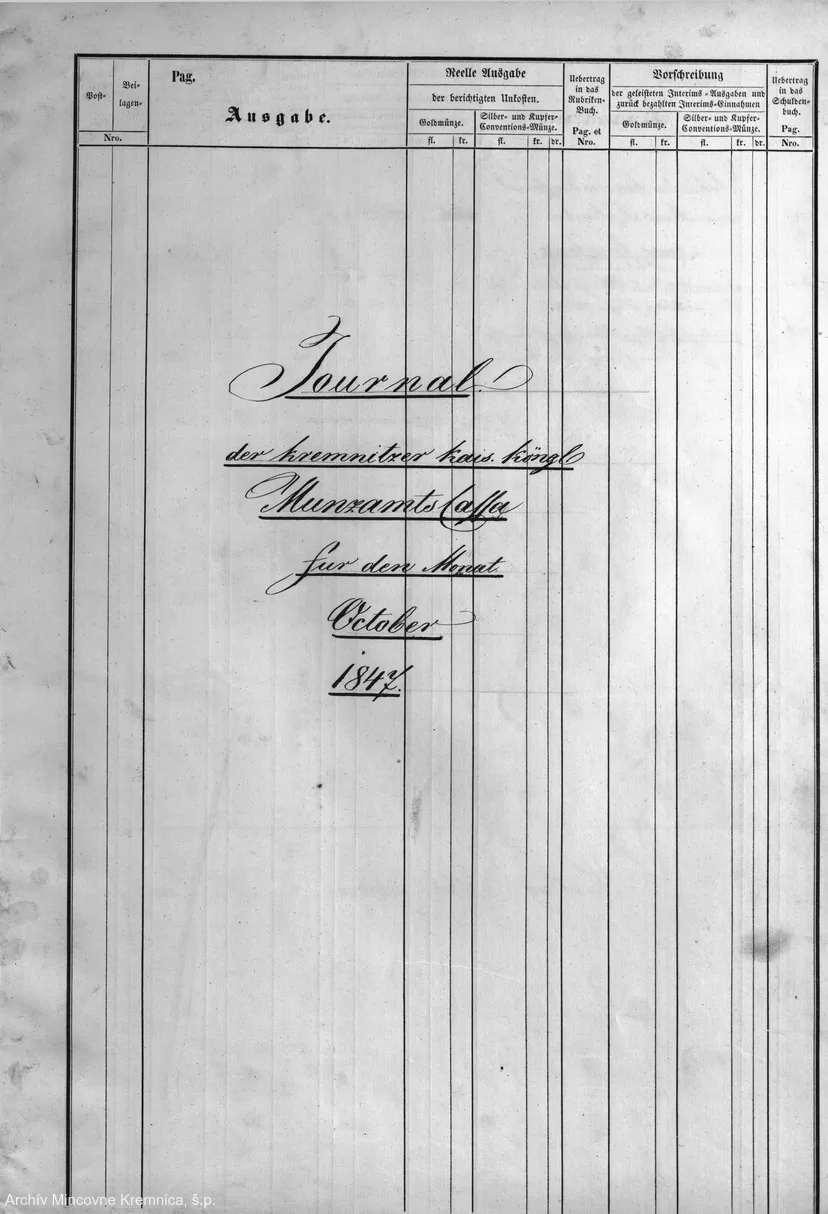 Post-
Bei-
lagen-
Nro.
Pag.
Ausgabe.
Reelle Ausgabe
der berichtigten Unkosten.
Goldmünze.
Silber- und Kupfer-
Conventions-Münze.
fl.
kr.
fl.
kr.
dr.
Uebertrag
in das
Rubriken-
Buch.
Pag. et
Nro.
Vorschreibung
der geleisteten Interims-Ausgaben und
zurück bezahlten Interims-Einnahmen
Goldmünze.
Silber- und Kupfer-
Conventions-Münze.
fl.
kr.
fl.
kr.
dr.
Uebertrag
in das
Schulden-
buch.
Pag.
Nro.
Journal
der kremnitzer kais. köngl
Munzamts Cassa
fur den Monat
October
1847.
Archív Mincovne Kremnica, š.p.